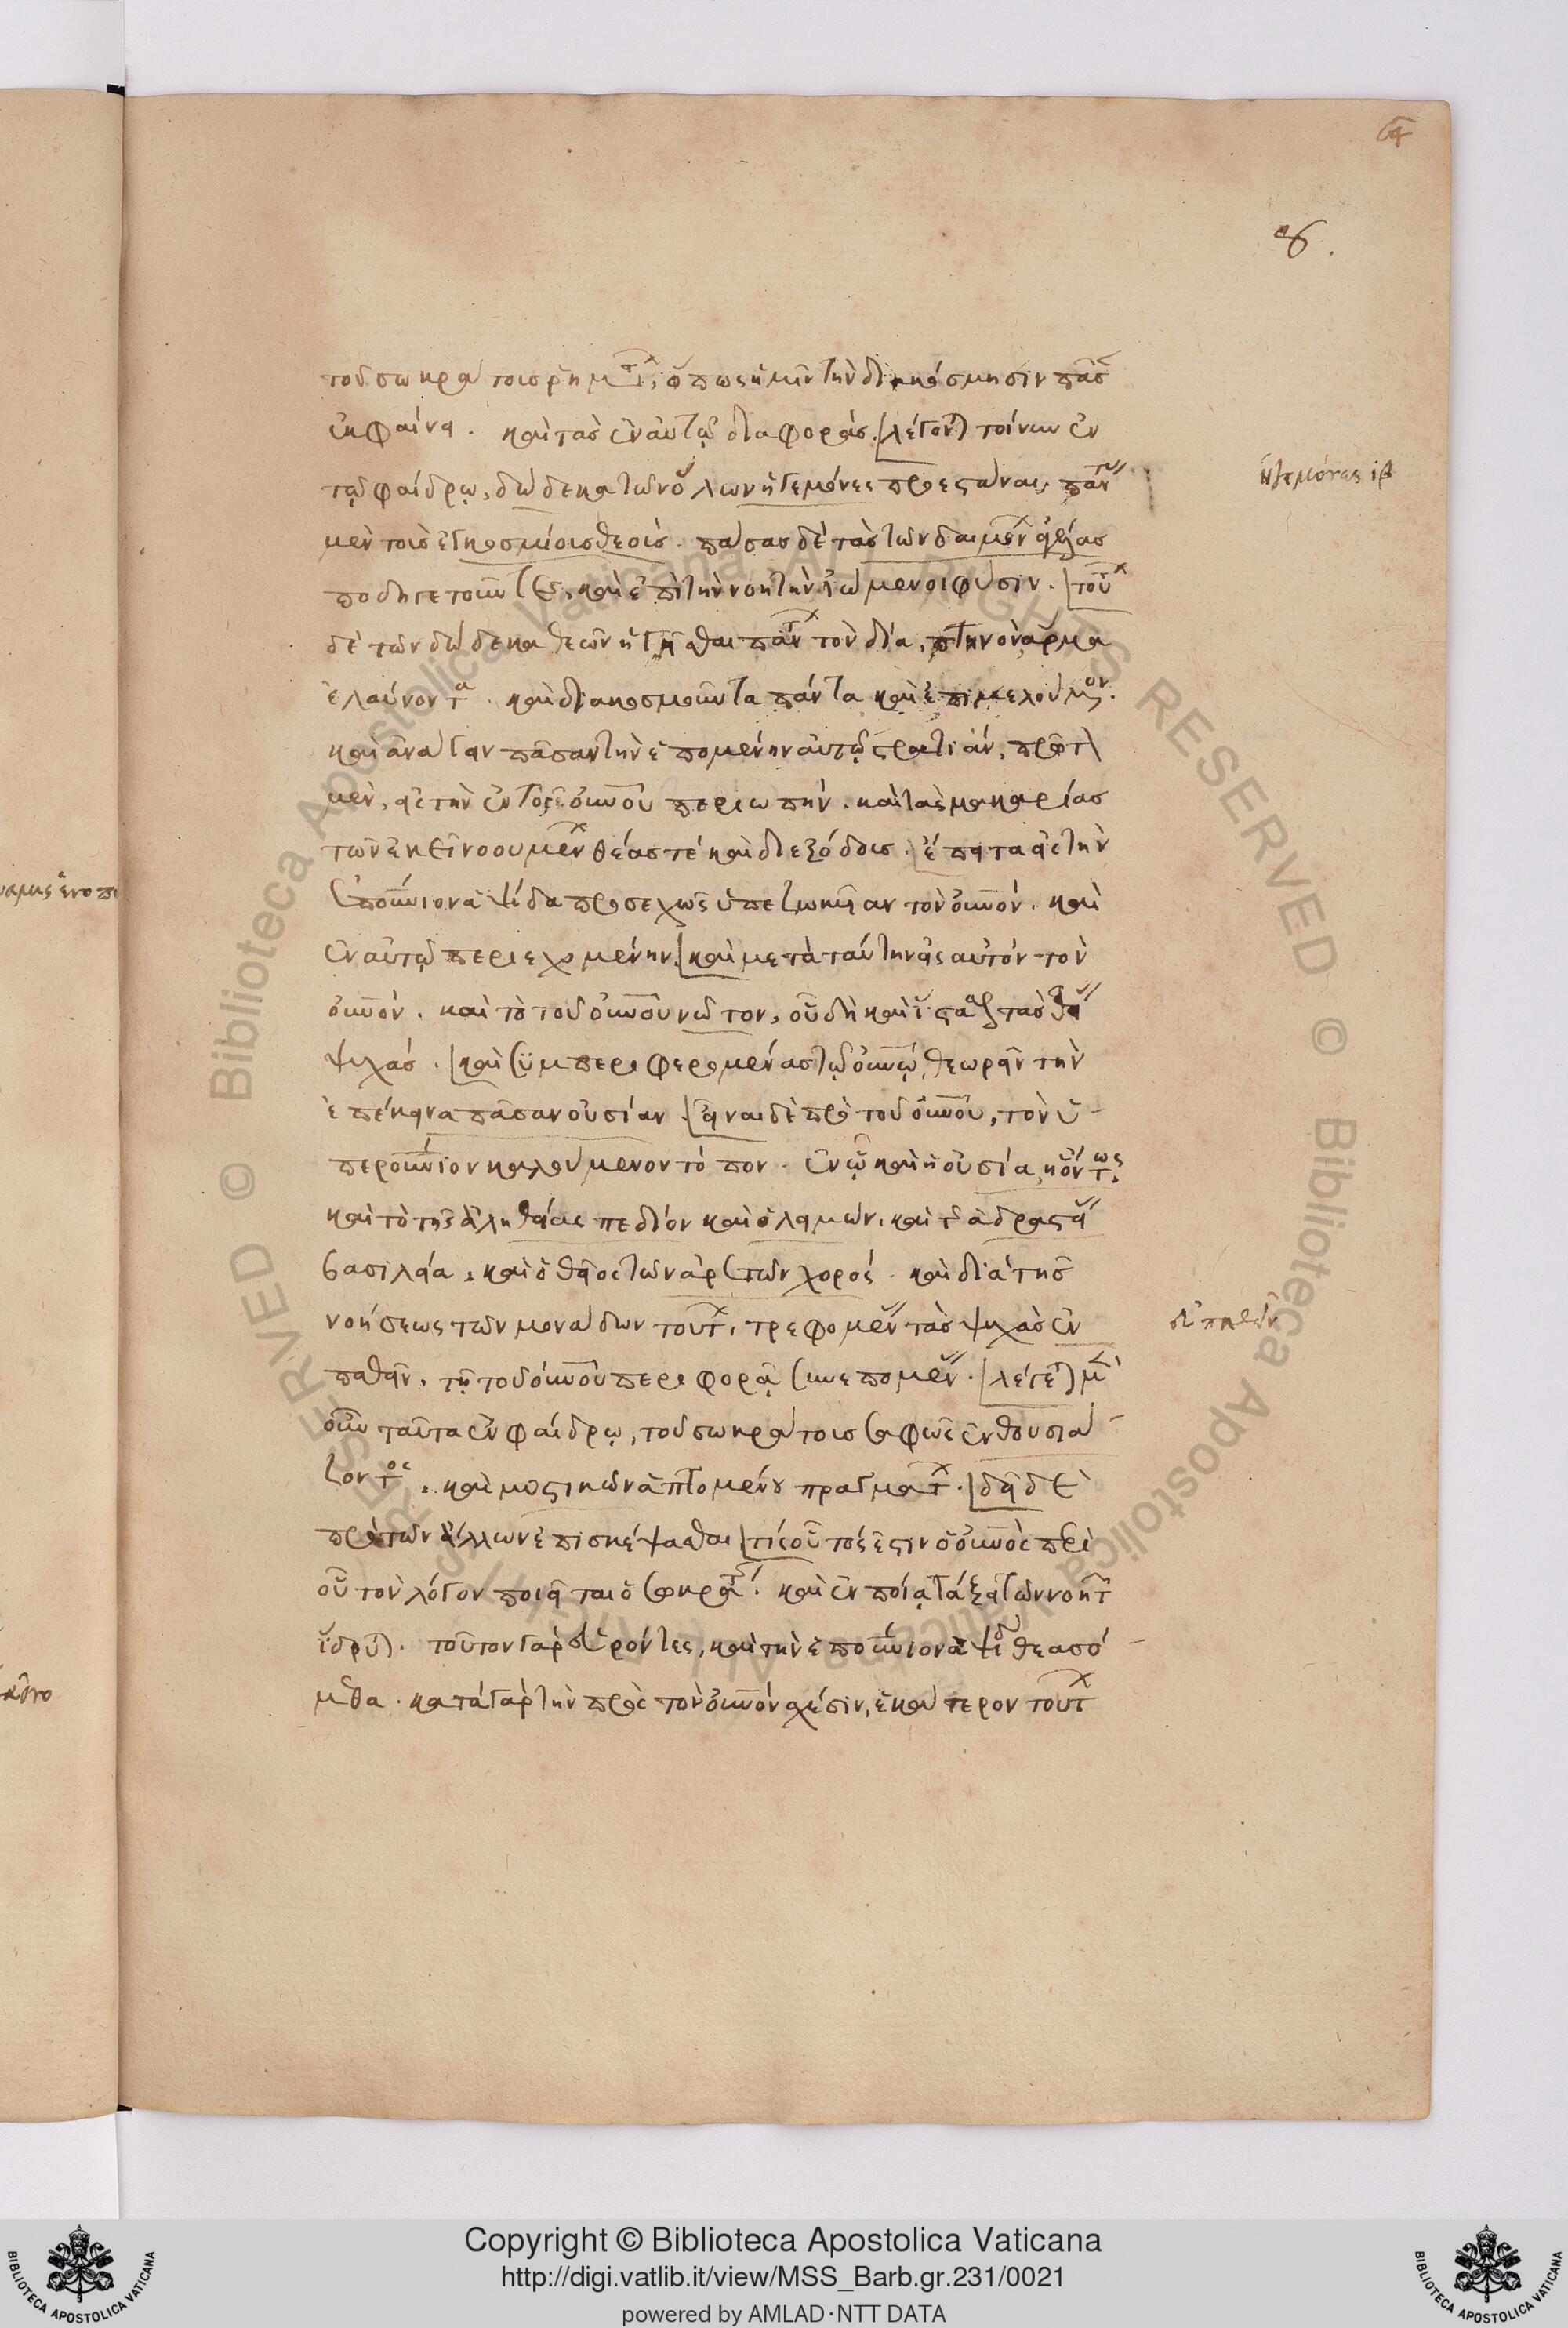 τοῦ σωκράτους ῥήματι, ὅπως ἡμῖν τὴν διακόσμησιν πᾶσαν
ἐκφαίνει. καὶ τὰς ἐν αὐτῷ διαφοράς. λέγονται τοίνυν ἐν
τῷ φαίδρῳ, δώδεκα τῶν ὅλων ἡγεμόνες προεστάναι, πάντων
ἡγεμόνας ιβ
μὲν τοῖς ἐγκοσμίοις θεοῖς. πάσας δὲ τὰς τῶν δαιμόνων ἀγέλας
ποδηγετοῦντες, καὶ ἐπὶ τὴν νοητὴν φύσιν. τούτων
δὲ τῶν δώδεκα θεῶν ἡγεῖσθαι πάντων τὸν δία, πτηνὸν ἅρμα
ἐλαύνοντα. καὶ διακοσμοῦντα πάντα καὶ ἐπιμελούμενον.
καὶ ἀνάγειν πᾶσαν τὴν ἑπομένην αὐτῷ στρατιάν, πρῶτον
μὲν, εἰς τὴν ἐντὸς οὐνοῦ περιωπήν. καὶ τὰς μακαρίας
τῶν ἐκεῖ νοουμένων θέας τὲ καὶ διεξόδους. ἔπειτα εἰς τὴν
ὑπουράνιον ἁψίδα προσεχῶς ὑπεζωκυῖαν τὸν οὐνόν. καὶ
ἐν αὐτῷ περιεχομένην. καὶ μετὰ ταύτην εἰς αὐτὸν τὸν
οὐνόν. καὶ τὸ τοῦ οὐνοῦ νῶτον, οὗ δὴ καὶ ἵστασθαι τὰς θείας
ψυχάς. καὶ συμπεριφερομένας τῷ οὐνῷ, θεωρεῖν τὴν
ἐπέκεινα πᾶσαν οὐσίαν. εἶναι δὲ πρὸ τοῦ οὐνοῦ, τὸν ὑ-
περουνιον καλούμενον τόπον. ἐν ᾧ καὶ ἡ οὐσία, ἡ ὄντως
καὶ τὸ τῆς ἀληθείας πεδίον καὶ ὁ λειμών. καὶ τῆς ἀδραστείας
βασιλεία, καὶ ὁ θεῖος τῶν ἀρετῶν χορός. καὶ διὰ τῆς
νοήσεως τῶν μονάδων τούτων, τρεφομένας τὰς ψυχὰς εὖ
παθεῖν. τῇ τοῦ οὐνοῦ περιφορᾷ συνεπομένας. λέγεται μὲν
οὖν ταῦτα ἐν φαίδρῳ, τοῦ σωκράτους σαφῶς ἐνθουσιά-
ζοντος. καὶ μυστικῶν ἁπτομένου πραγμάτων. δεῖ δὲ
πρὸ τῶν ἄλλων ἐπισκέψασθαι τίς οὗτός ἐστιν ὁ οὐνὸς περὶ
οὗ τὸν λόγον ποιεῖται ὁ σωκράτης. καὶ ἐν ποίᾳ τάξει τῶν νοητῶν
ἵδρυται. τοῦτον γὰρ εὑρόντες, καὶ τὴν ὑπουράνιον ἁψῖδα θεασό-
μεθα. κατὰ γὰρ τὴν πρὸς τὸν οὐνὸν σχέσιν, ἑκάτερον τούτων
Copyright © Biblioteca Apostolica Vaticana
http://digi.vatlib.it/view/MSS_Barb.gr.231/0021
powered by AMLAD·NTT DATA
BIBLIOTECA APOSTOLICA VATICANA
BIBLIOTECA APOSTOLICA VATICANA
© Biblioteca Apostolica Vaticana ALL RIGHTS RESERVED
© Biblioteca Apostolica Vaticana ALL RIGHTS RESERVED